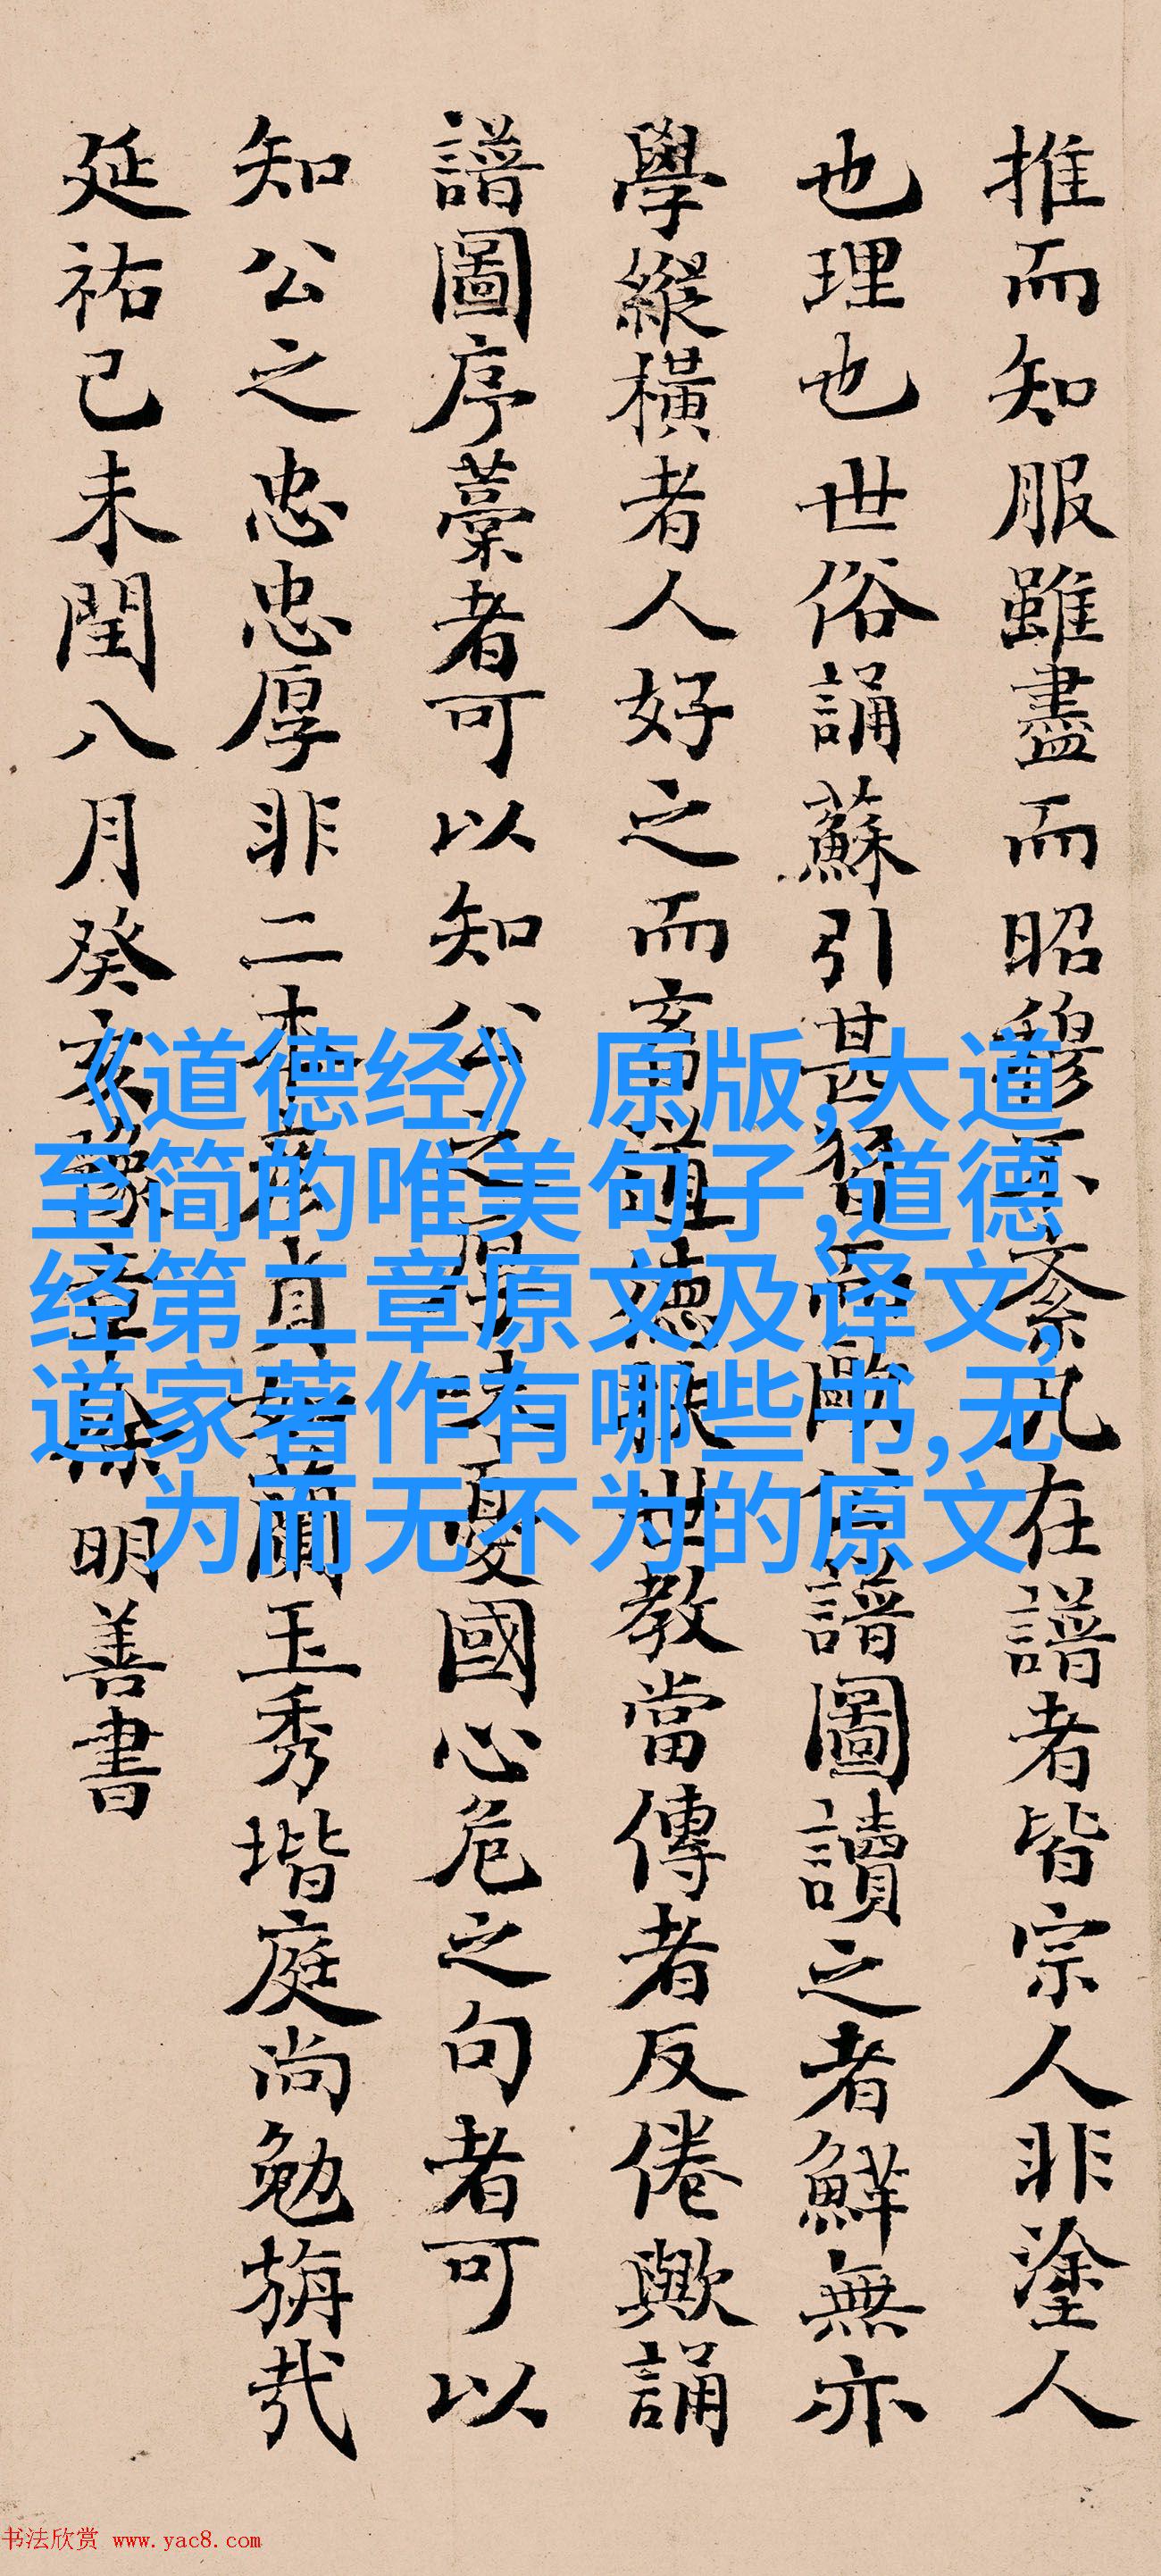 推而知服雖盡而昭穆不紊凡在譜者皆宗人非塗人
也理也世俗誦蘇引甚習至歐譜圖讀之者鮮無亦
學縱橫者人好之而言道德世教當傳者反倦歟誦
譜圖序藁者可以知公之憂國心危之句者可以
知公之忠忠厚非二本蘭玉秀堦庭尚勉旃哉
延祐己未閏八月癸亥豫章徐明善書
《道德经》原版,大道
至简的唯美句子,道德
经第二章原文及译文,
道家著作有哪些书,无
为而无不为的原文
书法欣赏 www.yac8.com